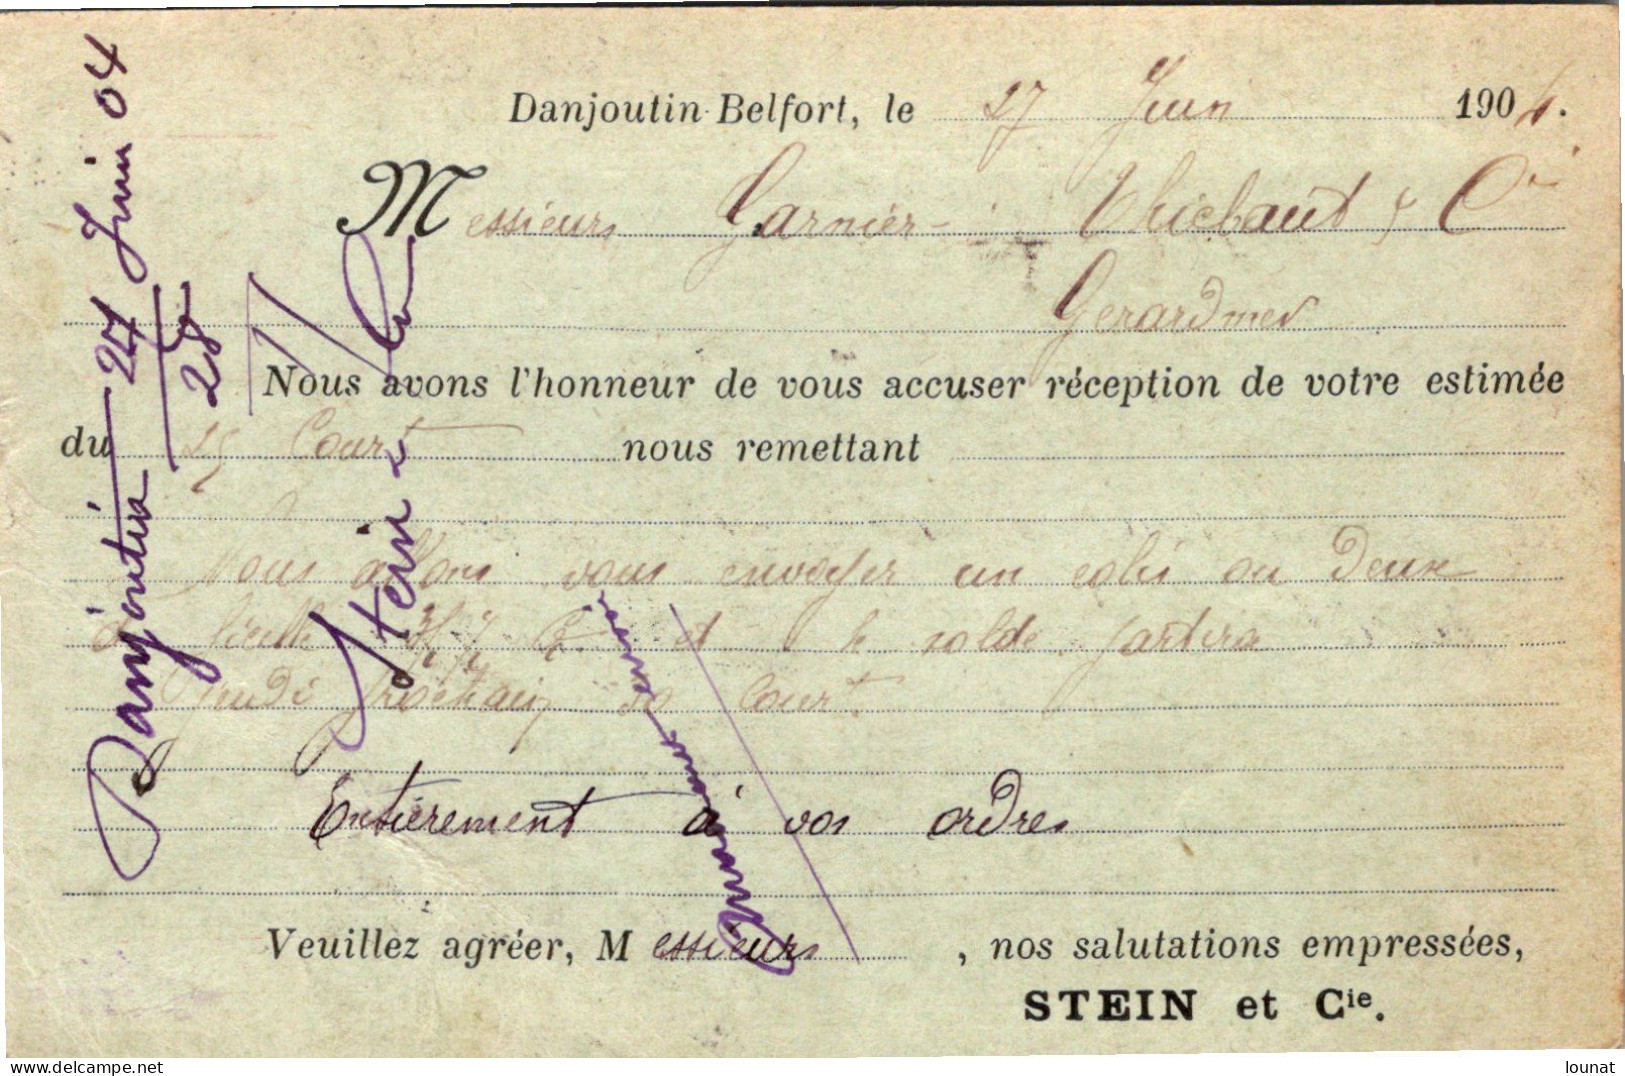 Danjoutin-Belfort, le 27 Juin 1904.
Messieurs Garnier-Thiébaut & Cie
Gerardmer
Nous avons l'honneur de vous accuser réception de votre estimée
du 25 Court nous remettant
Nous allons vous envoyer un colis ou deux
de ficelle et le solde partira
jeudi prochain 30 Court.
Entièrement à vos ordres
Veuillez agréer, Messieurs, nos salutations empressées,
STEIN et Cie.
Danjoutin 27 Juin 04
28
Stein &
lounat